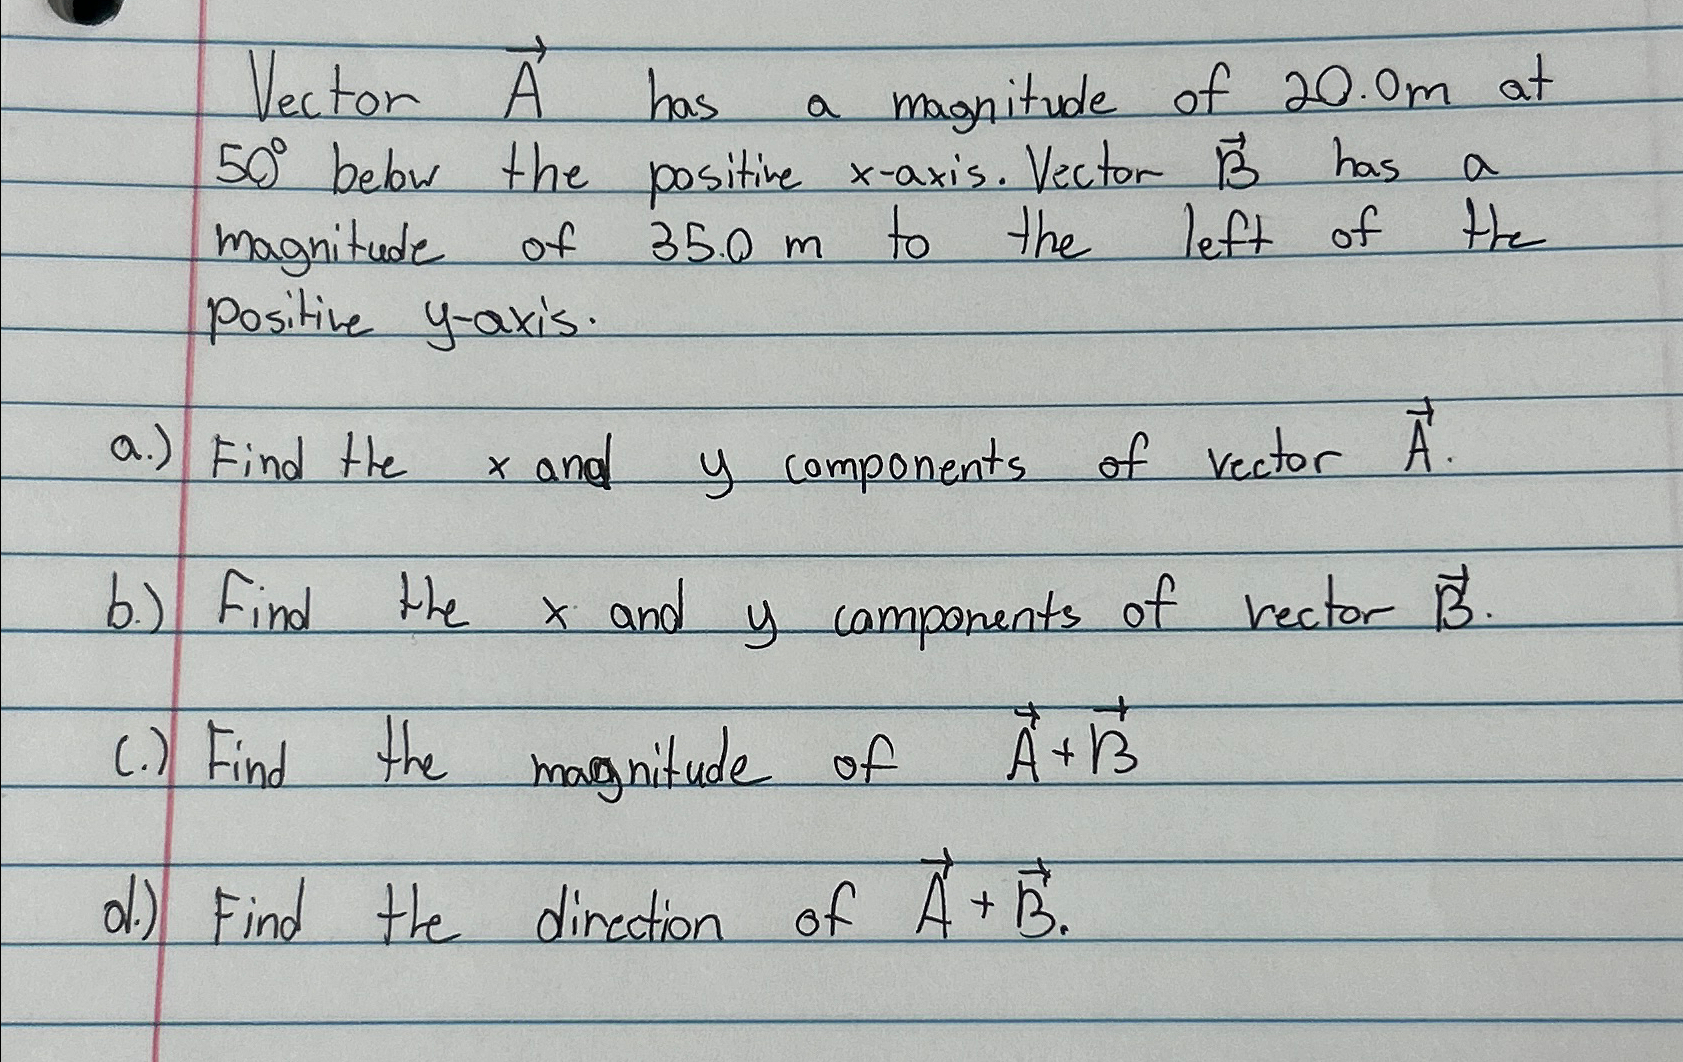 Vector A⃗ has a magnitude of 20.0m at
50° below the positive x-axis. Vector B⃗ has a
magnitude of 35.0 m to the left of the
positive y-axis.
a.) Find the x and y components of vector A⃗.
b.) Find the x and y components of vector B⃗.
c.) Find the magnitude of A⃗ + B⃗
d.) Find the direction of A⃗ + B⃗.